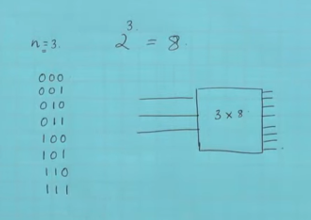 n=3.
2³ = 8.
000
001
010
011
100
101
110
111
3 x 8